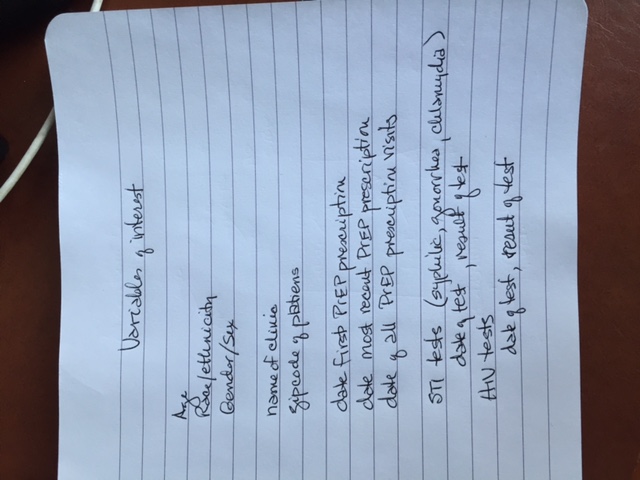 Variables of interest
Age
Race/ethnicity
Gender/Sex
name of clinic
zipcode of patiens
date first PrEP prescription
date most recent PrEP prescription
date of all PrEP prescription visits
STI tests (syphilis, gonorrhea, chlamydia)
date of test, result of test
HIV tests
date of test, result of test